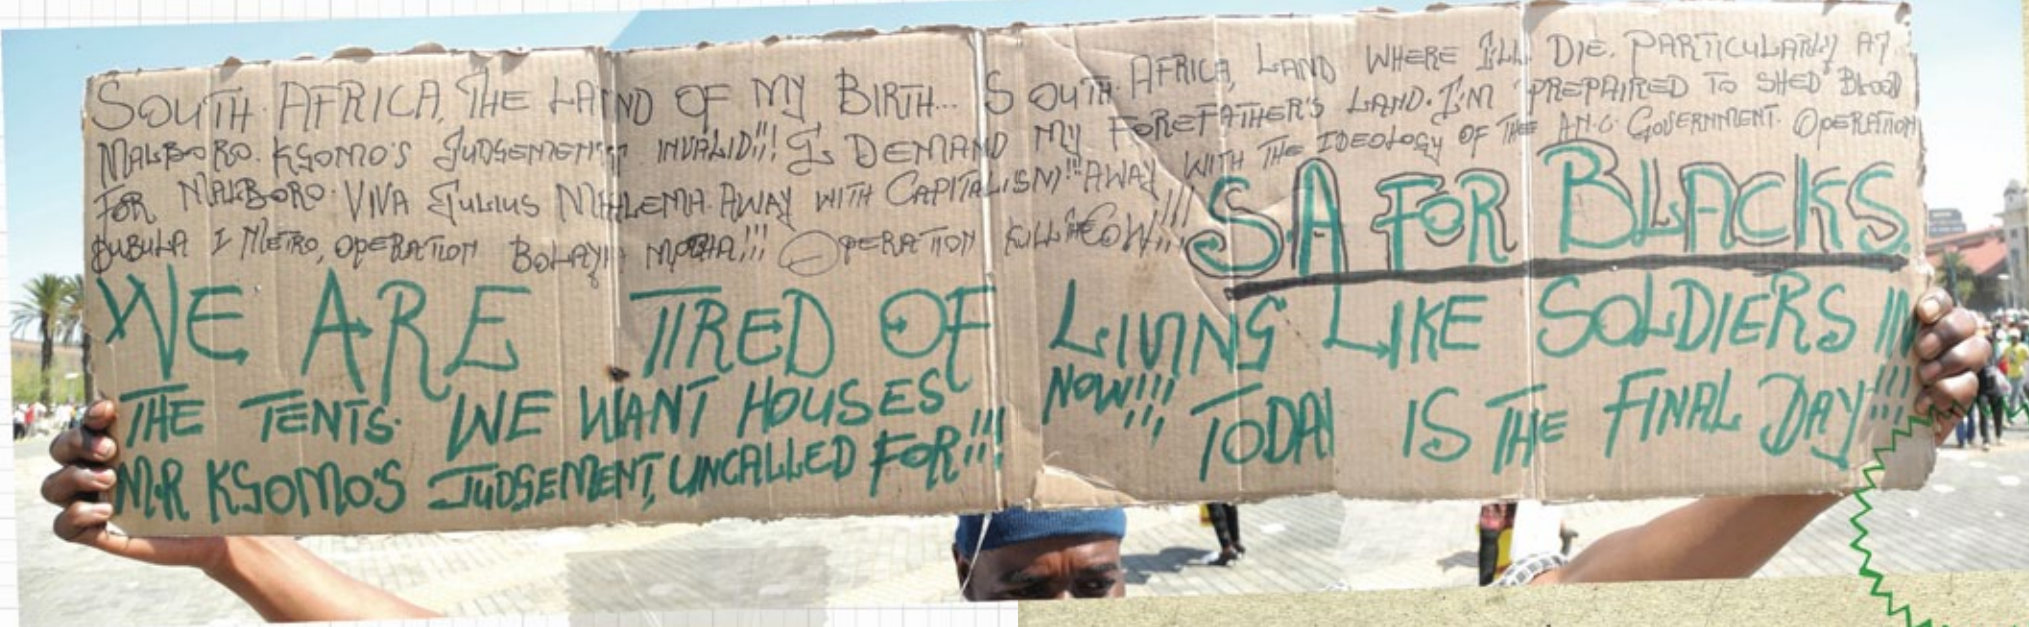 SOUTH AFRICA, THE LAND OF MY BIRTH... SOUTH AFRICA, LAND WHERE I'LL DIE. PARTICULARLY AT
MALBORO. KGOMO'S JUDGEMENT INVALID!!! I DEMAND MY FOREFATHER'S LAND. I'M PREPAIRED TO SHED BLOOD
FOR MALBORO. VIVA JULIUS MALEMA. AWAY WITH CAPITALISM!!! AWAY WITH THE IDEOLOGY OF THE A.N.C. GOVERNMENT. OPERATION
BUBULA I METRO, OPERATION BOLAYA!!! OPERATION KILL THE COW!!!
S.A FOR BLACKS.
WE ARE TIRED OF LIVING LIKE SOLDIERS!!!
THE TENTS. WE WANT HOUSES NOW!!! TODAY IS THE FINAL DAY!!!
MR KGOMO'S JUDGEMENT, UNCALLED FOR!!!